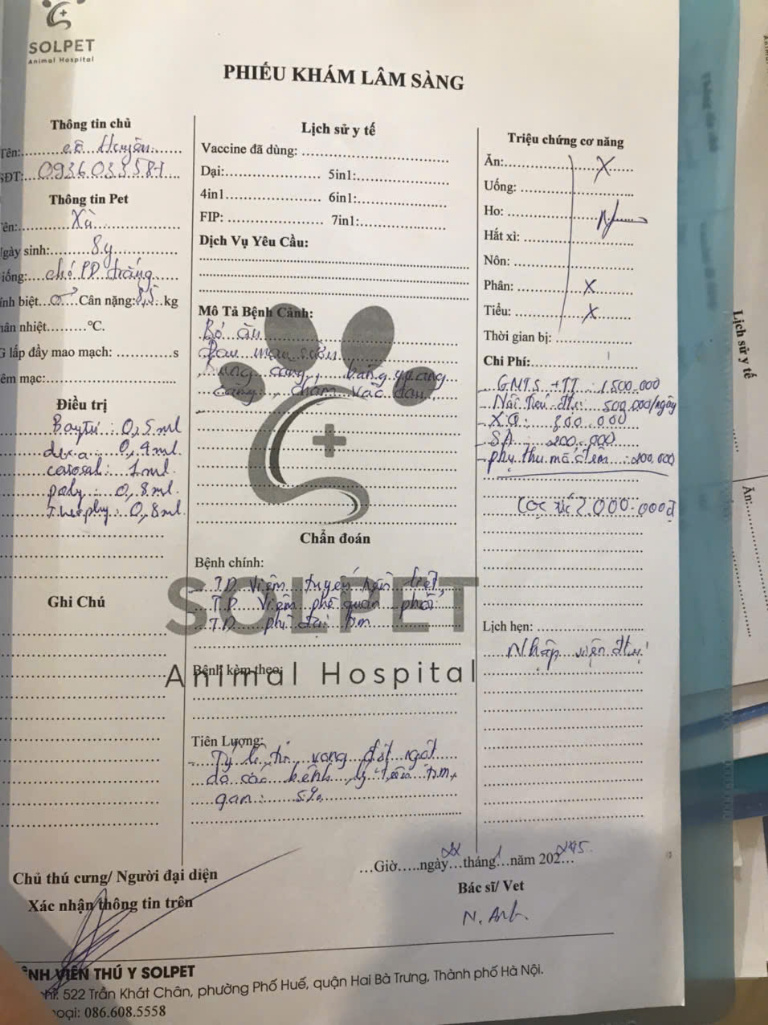 SOLPET
Animal Hospital
PHIẾU KHÁM LÂM SÀNG
Thông tin chủ
Tên: cô Huyền
SĐT: 0936033587
Thông tin Pet
Tên: Xù
Ngày sinh: 8y
iống: chó PD trắng
ính biệt ♂ Cân nặng: kg
hân nhiệt °C.
G lấp đầy mao mạch: s
êm mạc:
Điều trị
Baytu: 0,5ml
dexa: 0,4ml
catosal: 1ml
poly: 0,8ml
Theophy: 0,8ml
Ghi Chú
Lịch sử y tế
Vaccine đã dùng:
Dại: 5in1:
4in1 6in1:
FIP: 7in1:
Dịch Vụ Yêu Cầu:
Mô Tả Bệnh Cảnh:
- Bỏ ăn
bàng quang
căng, chạm vào đau
SOLPET
Animal Hospital
Chẩn đoán
Bệnh chính:
- TD viêm tuyến tiền liệt
- TD viêm phế quản phổi
- TD phì đại tim
Bệnh kèm theo:
Tiên Lượng:
- Tỷ lệ tử vong đột ngột
do các bệnh lý tim,
gan: 5%
Triệu chứng cơ năng
Ăn: X
Uống:
Ho:
Hắt xì:
Nôn:
Phân: X
Tiểu: X
Thời gian bị:
Chi Phí:
- GMTS + TT: 1.500.000
- Nội trú đtrị 500.000/ngày
- XQ: 300.000
- SA: 200.000
- phụ thu mã đêm: 200.000
Cọc 2.000.000đ
Lịch hẹn:
Nhập viện đtrị
Giờ ngày 22 tháng 1 năm 202
Chủ thú cưng/ Người đại diện
Xác nhận thông tin trên
Bác sĩ/ Vet
N. Anh
ỆNH VIỆN THÚ Y SOLPET
chỉ: 522 Trần Khát Chân, phường Phố Huế, quận Hai Bà Trưng, Thành phố Hà Nội.
oại: 086.608.5558
Lịch sử y tế
Ăn: